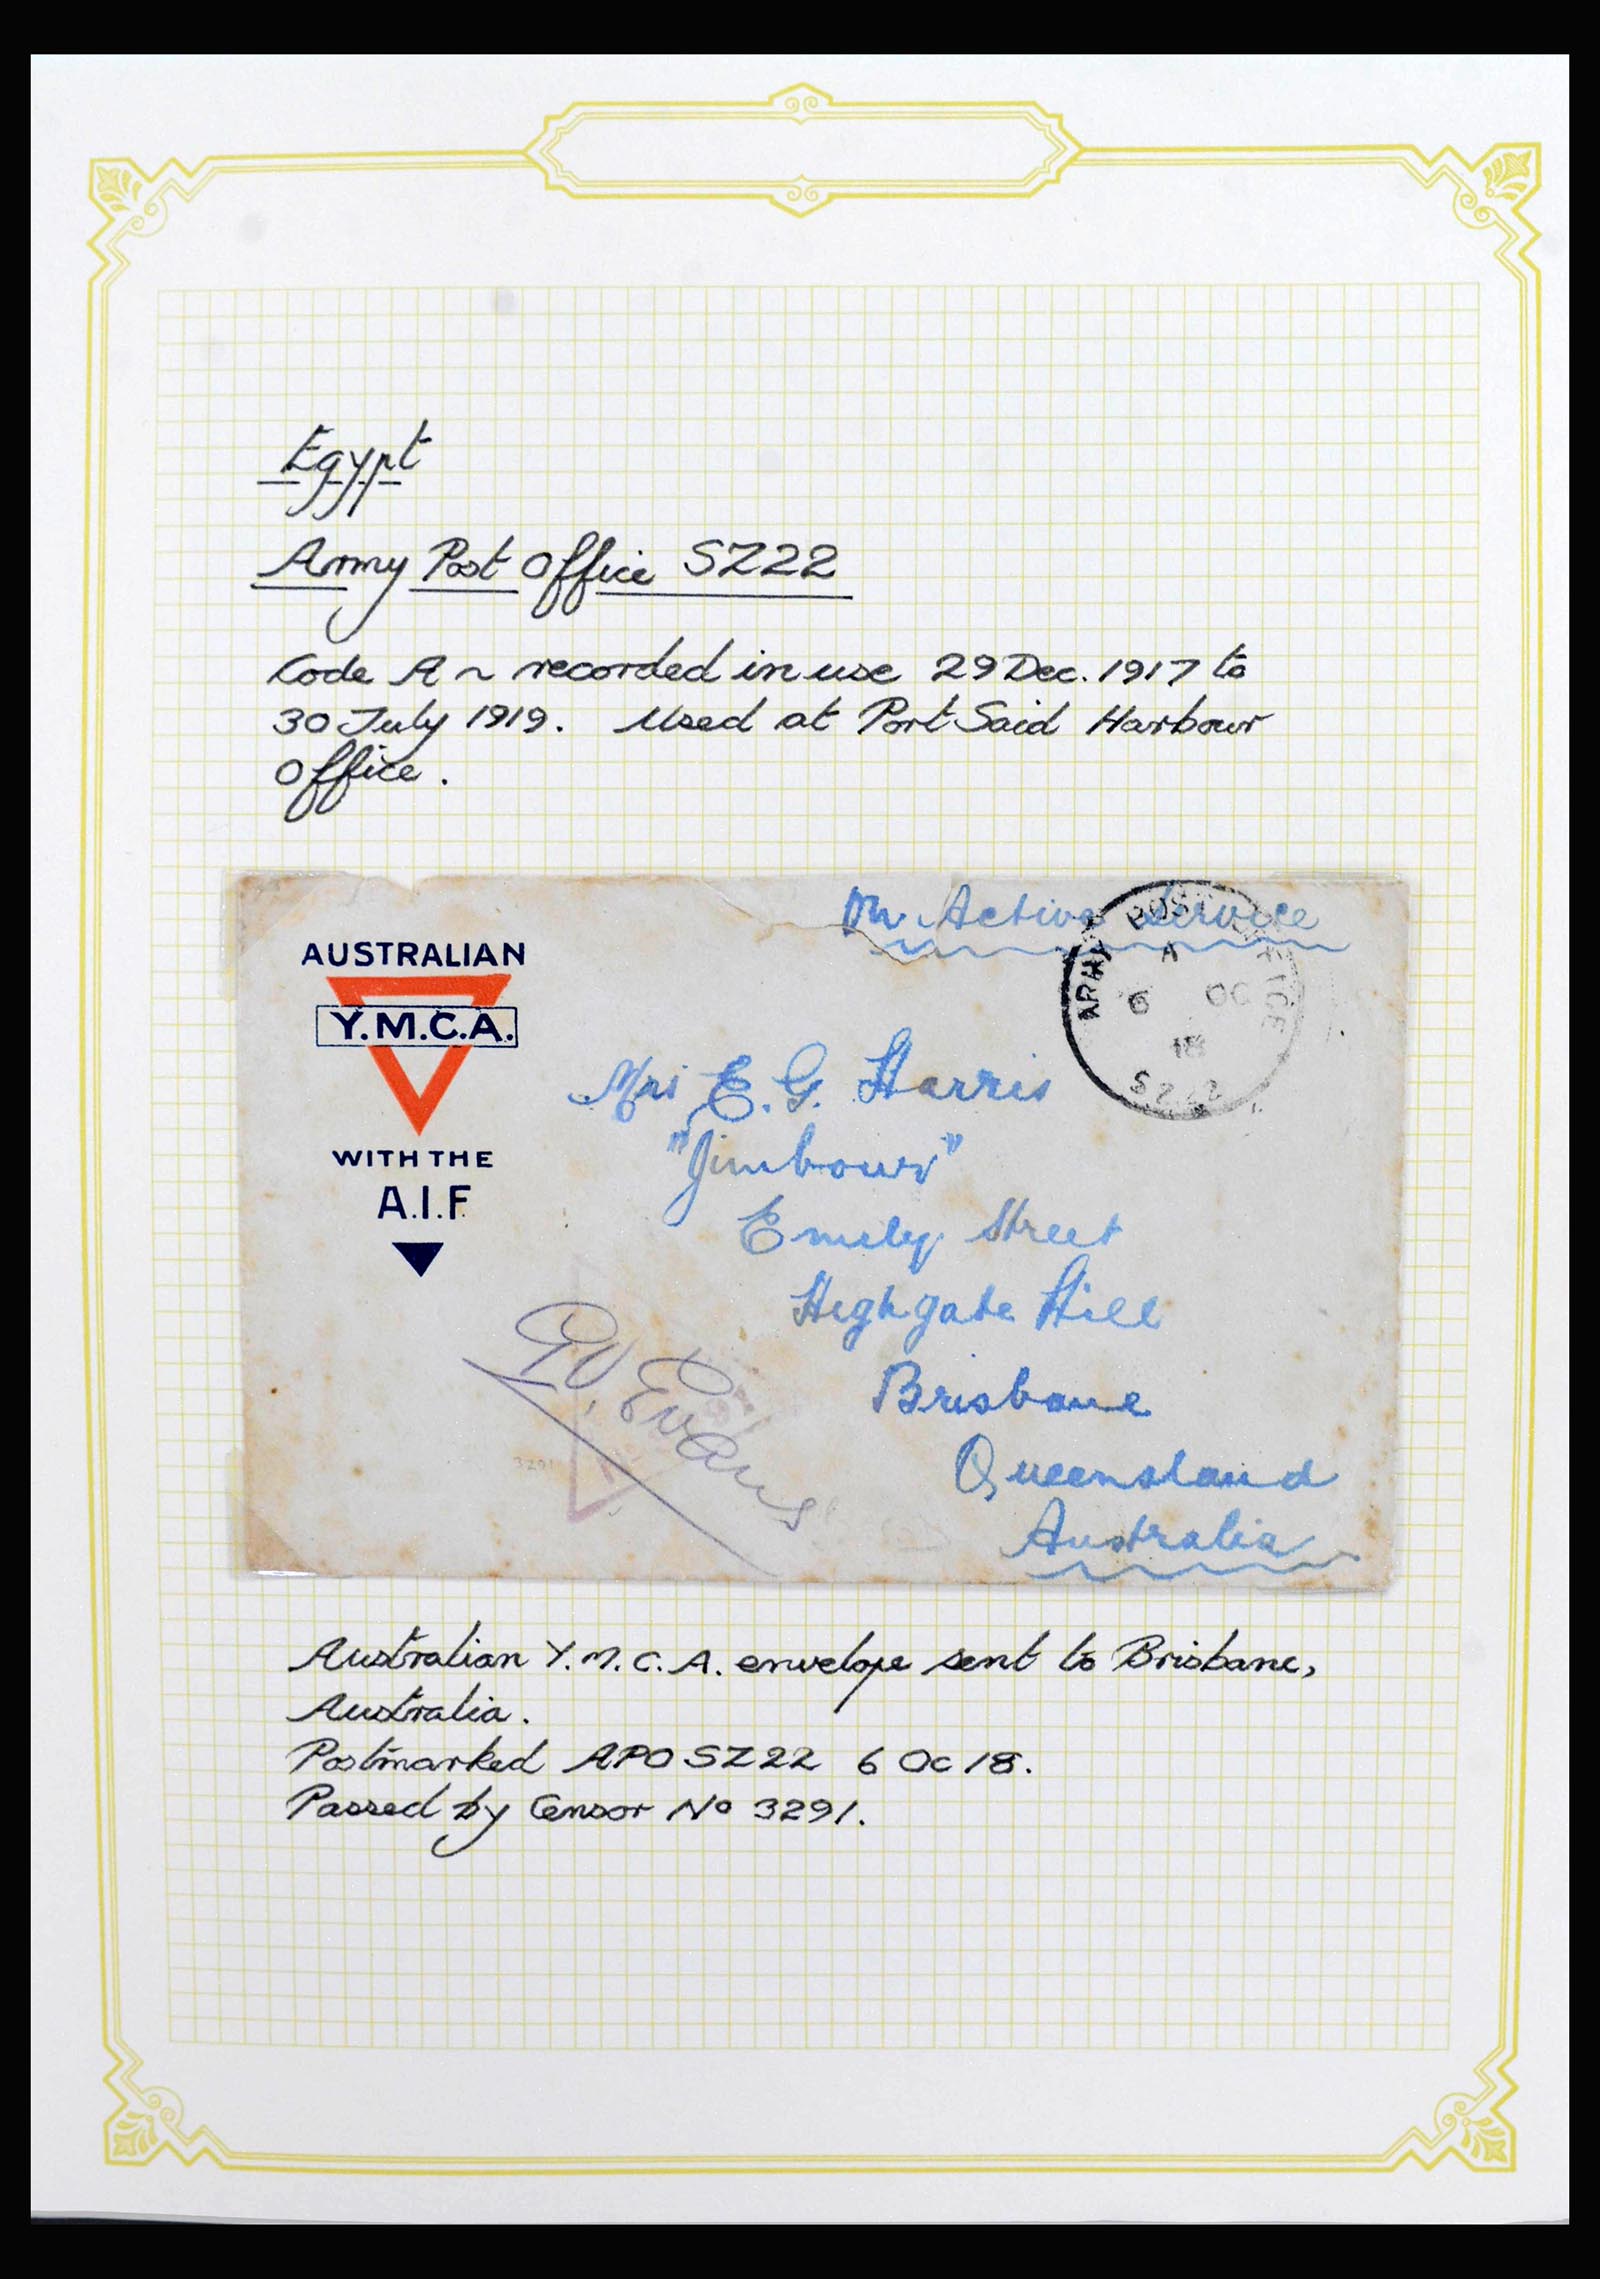 Egypt
Army Post Office SZ22
Code A ~ recorded in use 29 Dec. 1917 to
30 July 1919. Used at Port Said Harbour
Office.
On Active Service
ARMY POST OFFICE
A
6 OC
18
SZ22
AUSTRALIAN
Y.M.C.A.
WITH THE
A.I.F.
Mrs E. G. Harris
"Jimbour"
Emily Street
Highgate Hill
Brisbane
Queensland
Australia
Evans
3291
Australian Y.M.C.A. envelope sent to Brisbane,
Australia.
Postmarked APO SZ22 6 Oc 18.
Passed by Censor No 3291.